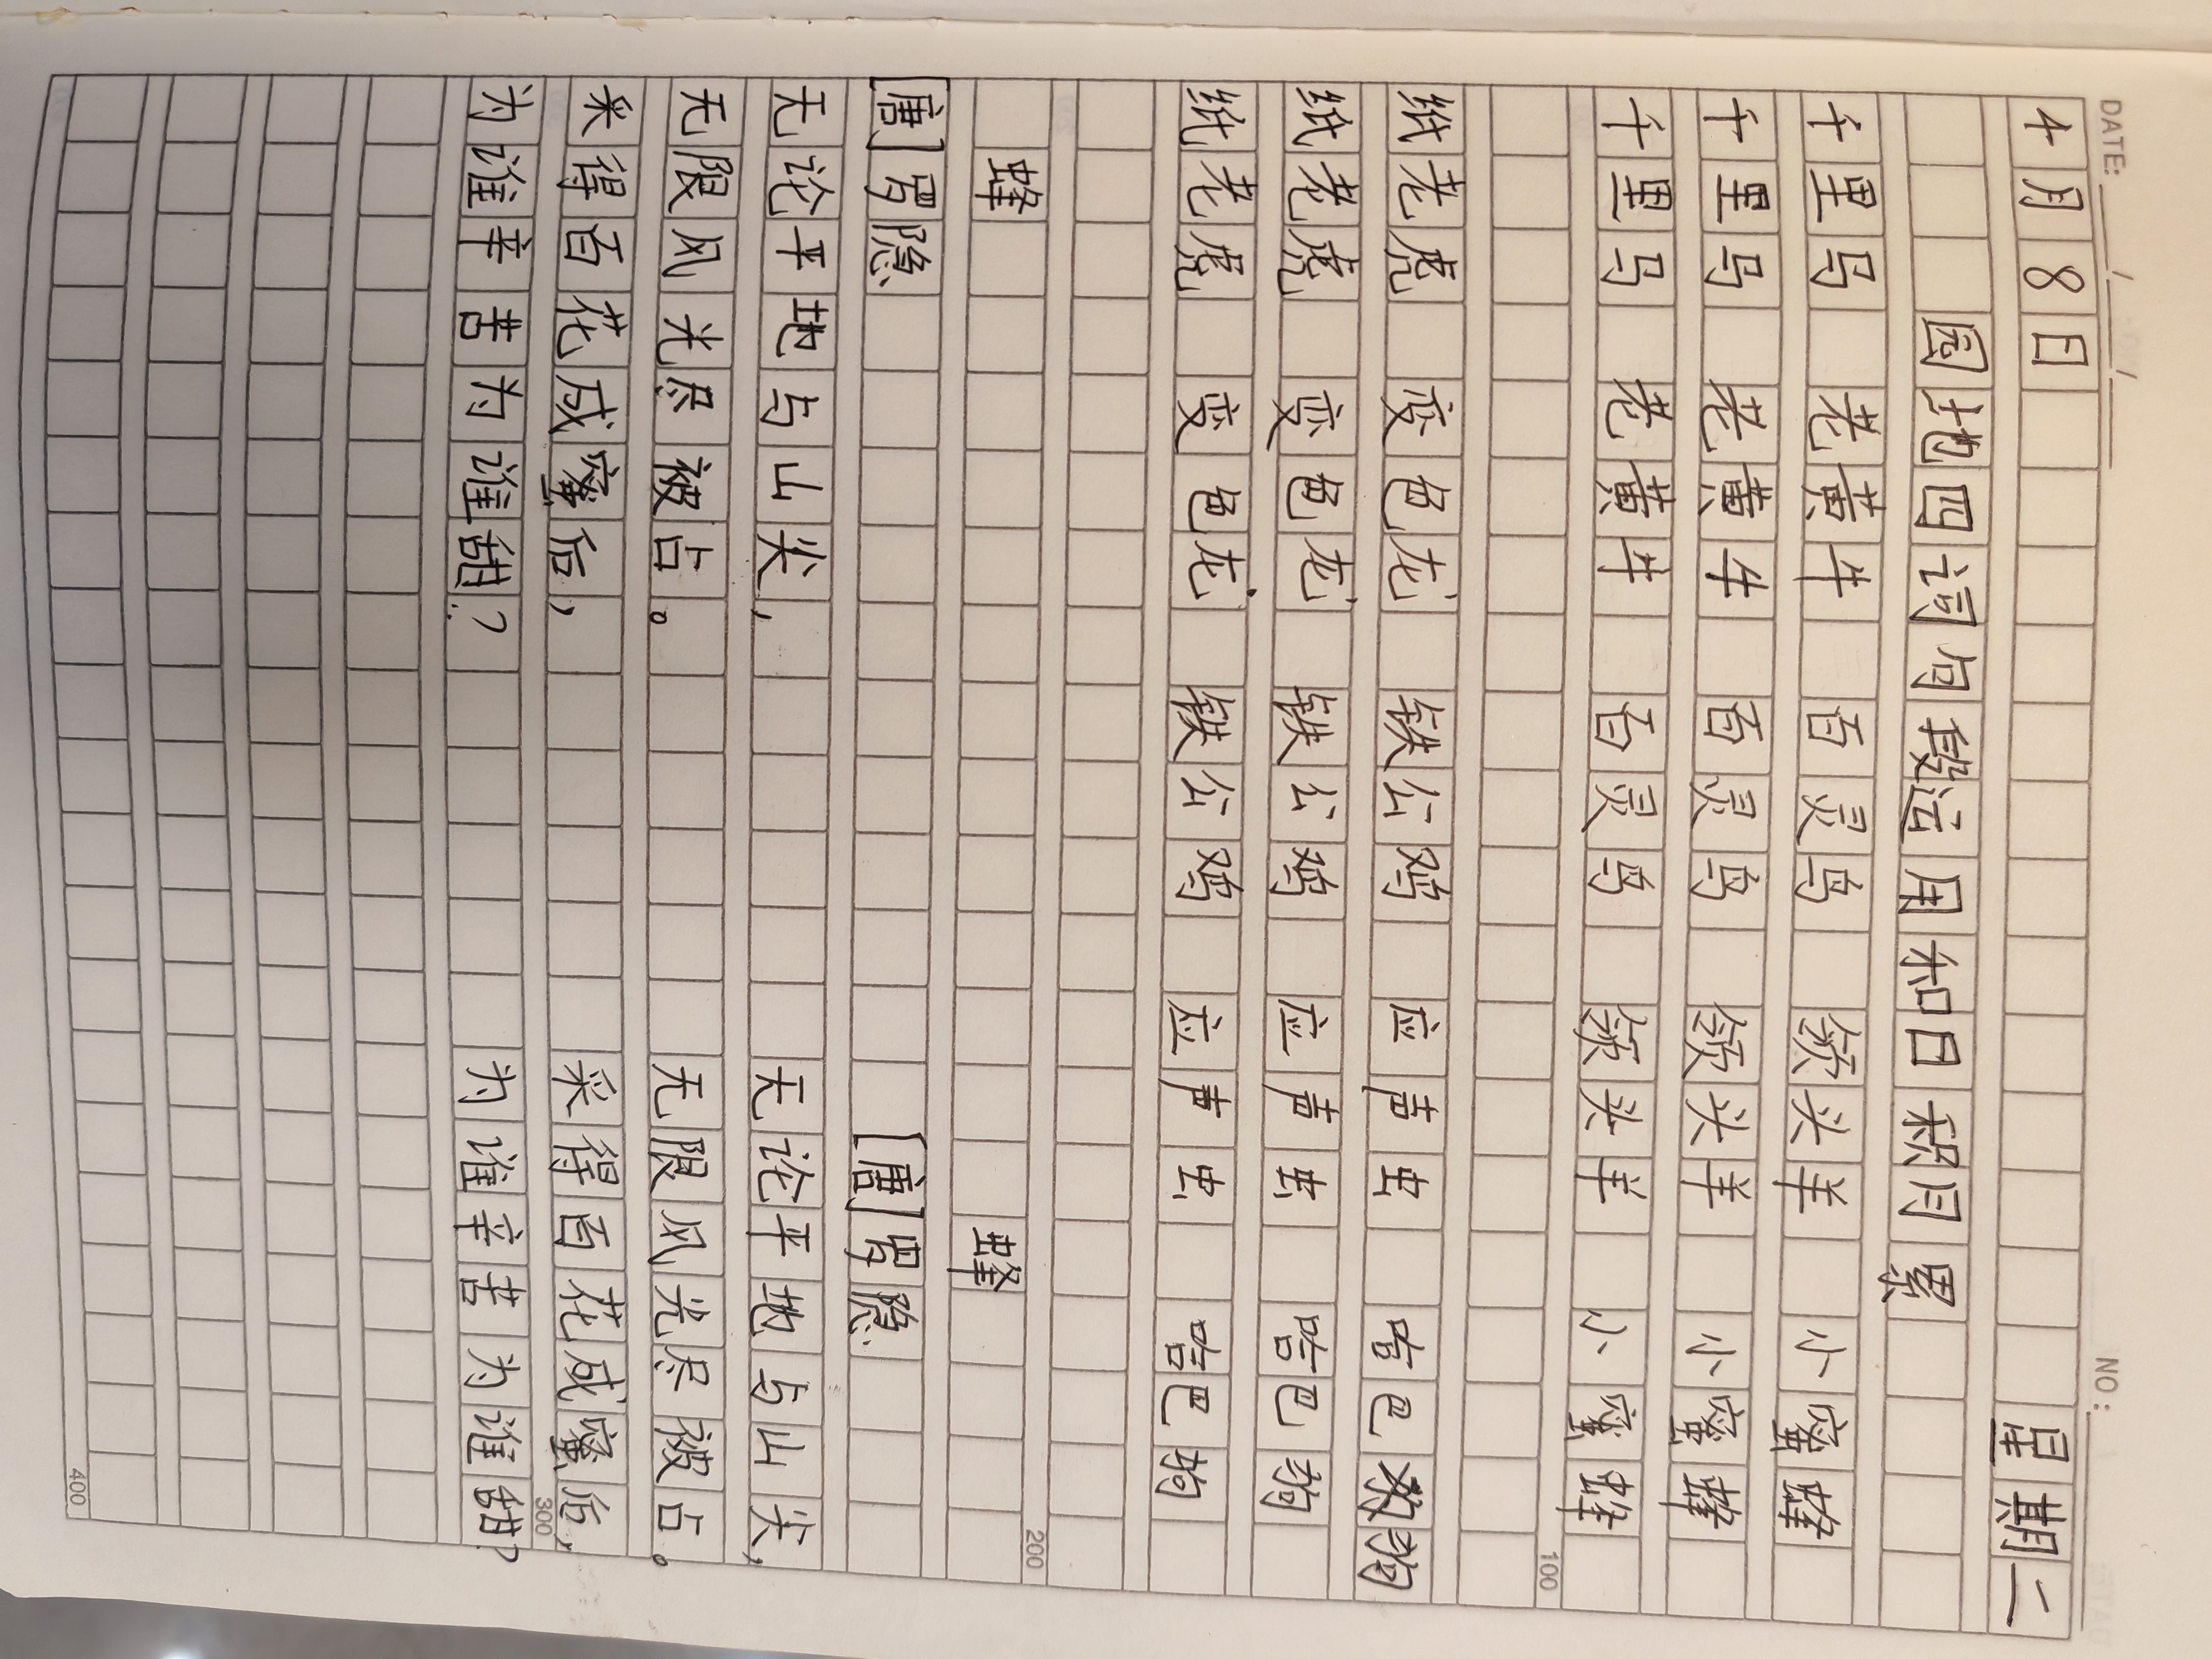 DATE: / / NO:
4月8日 星期二
园地四词句段运用和日积月累
千里马 老黄牛 百灵鸟 领头羊 小蜜蜂
千里马 老黄牛 百灵鸟 领头羊 小蜜蜂
千里马 老黄牛 百灵鸟 领头羊 小蜜蜂
100
纸老虎 变色龙 铁公鸡 应声虫 哈巴狗
纸老虎 变色龙 铁公鸡 应声虫 哈巴狗
纸老虎 变色龙 铁公鸡 应声虫 哈巴狗
200
蜂 蜂
[唐]罗隐 [唐]罗隐
无论平地与山尖, 无论平地与山尖,
无限风光尽被占。 无限风光尽被占。
采得百花成蜜后, 采得百花成蜜后,
300
为谁辛苦为谁甜? 为谁辛苦为谁甜?
400